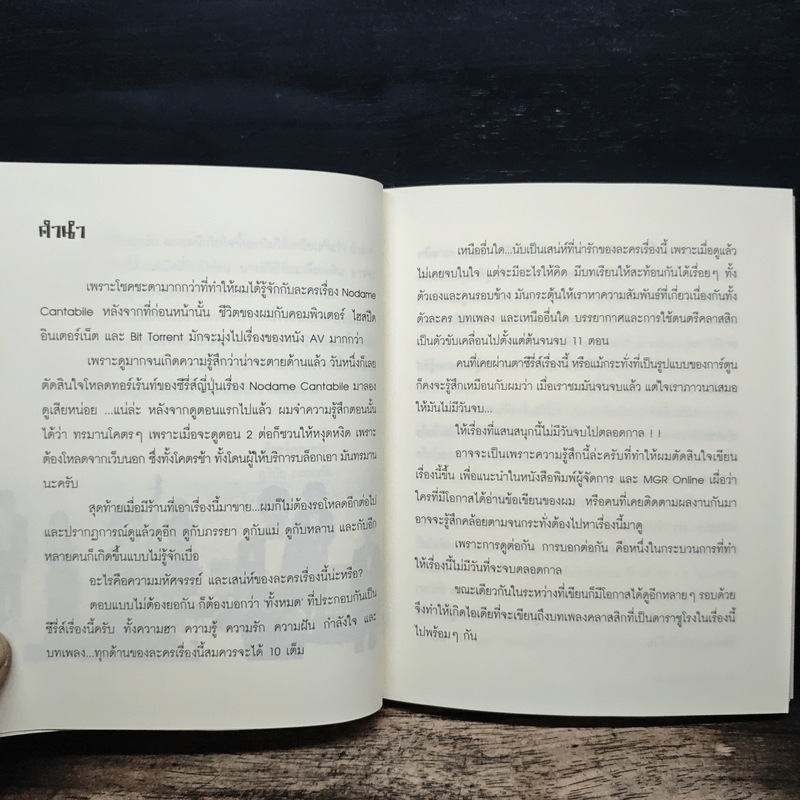 คำนำ
เพราะโชคชะตามากกว่าที่ทำให้ผมได้รู้จักกับละครเรื่อง Nodame
Cantabile หลังจากที่ก่อนหน้านั้น ชีวิตของผมกับคอมพิวเตอร์ ไฮสปีด
อินเตอร์เน็ต และ Bit Torrent มักจะมุ่งไปเรื่องของหนัง AV มากกว่า
เพราะดูมากจนเกิดความรู้สึกว่าน่าจะตายด้านแล้ว วันหนึ่งก็เลย
ตัดสินใจโหลดทอร์เร้นท์ของซีรี่ส์ญี่ปุ่นเรื่อง Nodame Cantabile มาลอง
ดูเสียหน่อย ...แน่ล่ะ หลังจากดูตอนแรกไปแล้ว ผมจำความรู้สึกตอนนั้น
ได้ว่า ทรมานโคตรๆ เพราะเมื่อจะดูตอน 2 ต่อก็ชวนให้หงุดหงิด เพราะ
ต้องโหลดจากเว็บนอก ซึ่งทั้งโคตรช้า ทั้งโดนผู้ให้บริการบล็อกเอา มันทรมาน
นะครับ
สุดท้ายเมื่อมีร้านที่เอาเรื่องนี้มาขาย...ผมก็ไม่ต้องรอโหลดอีกต่อไป
และปรากฏการณ์ดูแล้วดูอีก ดูกับภรรยา ดูกับแม่ ดูกับหลาน และกับอีก
หลายคนก็เกิดขึ้นแบบไม่รู้จักเบื่อ
อะไรคือความมหัศจรรย์ และเสน่ห์ของละครเรื่องนี้น่ะหรือ?
ตอบแบบไม่ต้องยอกัน ก็ต้องบอกว่า 'ทั้งหมด' ที่ประกอบกันเป็น
ซีรี่ส์เรื่องนี้ครับ ทั้งความฮา ความรู้ ความรัก ความฝัน กำลังใจ และ
บทเพลง...ทุกด้านของละครเรื่องนี้สมควรจะได้ 10 เต็ม
เหนืออื่นใด...นับเป็นเสน่ห์ที่น่ารักของละครเรื่องนี้ เพราะเมื่อดูแล้ว
ไม่เคยจบในใจ แต่จะมีอะไรให้คิด มีบทเรียนให้สะท้อนกันได้เรื่อยๆ ทั้ง
ตัวเองและคนรอบข้าง มันกระตุ้นให้เราหาความสัมพันธ์ที่เกี่ยวเนื่องกันทั้ง
ตัวละคร บทเพลง และเหนืออื่นใด บรรยากาศและการใช้ดนตรีคลาสสิก
เป็นตัวขับเคลื่อนไปตั้งแต่ต้นจนจบ 11 ตอน
คนที่เคยผ่านตาซีรี่ส์เรื่องนี้ หรือแม้กระทั่งที่เป็นรูปแบบของการ์ตูน
ก็คงจะรู้สึกเหมือนกับผมว่า เมื่อเราชมมันจนจบแล้ว แต่ใจเราภาวนาเสมอ
ให้มันไม่มีวันจบ...
ให้เรื่องที่แสนสนุกนี้ไม่มีวันจบไปตลอดกาล !!
อาจจะเป็นเพราะความรู้สึกนี้ล่ะครับที่ทำให้ผมตัดสินใจเขียน
เรื่องนี้ขึ้น เพื่อแนะนำในหนังสือพิมพ์ผู้จัดการ และ MGR Online เผื่อว่า
ใครที่มีโอกาสได้อ่านข้อเขียนของผม หรือคนที่เคยติดตามผลงานกันมา
อาจจะรู้สึกคล้อยตามจนกระทั่งต้องไปหาเรื่องนี้มาดู
เพราะการดูต่อกัน การบอกต่อกัน คือหนึ่งในกระบวนการที่ทำ
ให้เรื่องนี้ไม่มีวันที่จะจบตลอดกาล
ขณะเดียวกันในระหว่างที่เขียนก็มีโอกาสได้ดูอีกหลายๆ รอบด้วย
จึงทำให้เกิดไอเดียที่จะเขียนถึงบทเพลงคลาสสิกที่เป็นดาราชูโรงในเรื่องนี้
ไปพร้อมๆ กัน